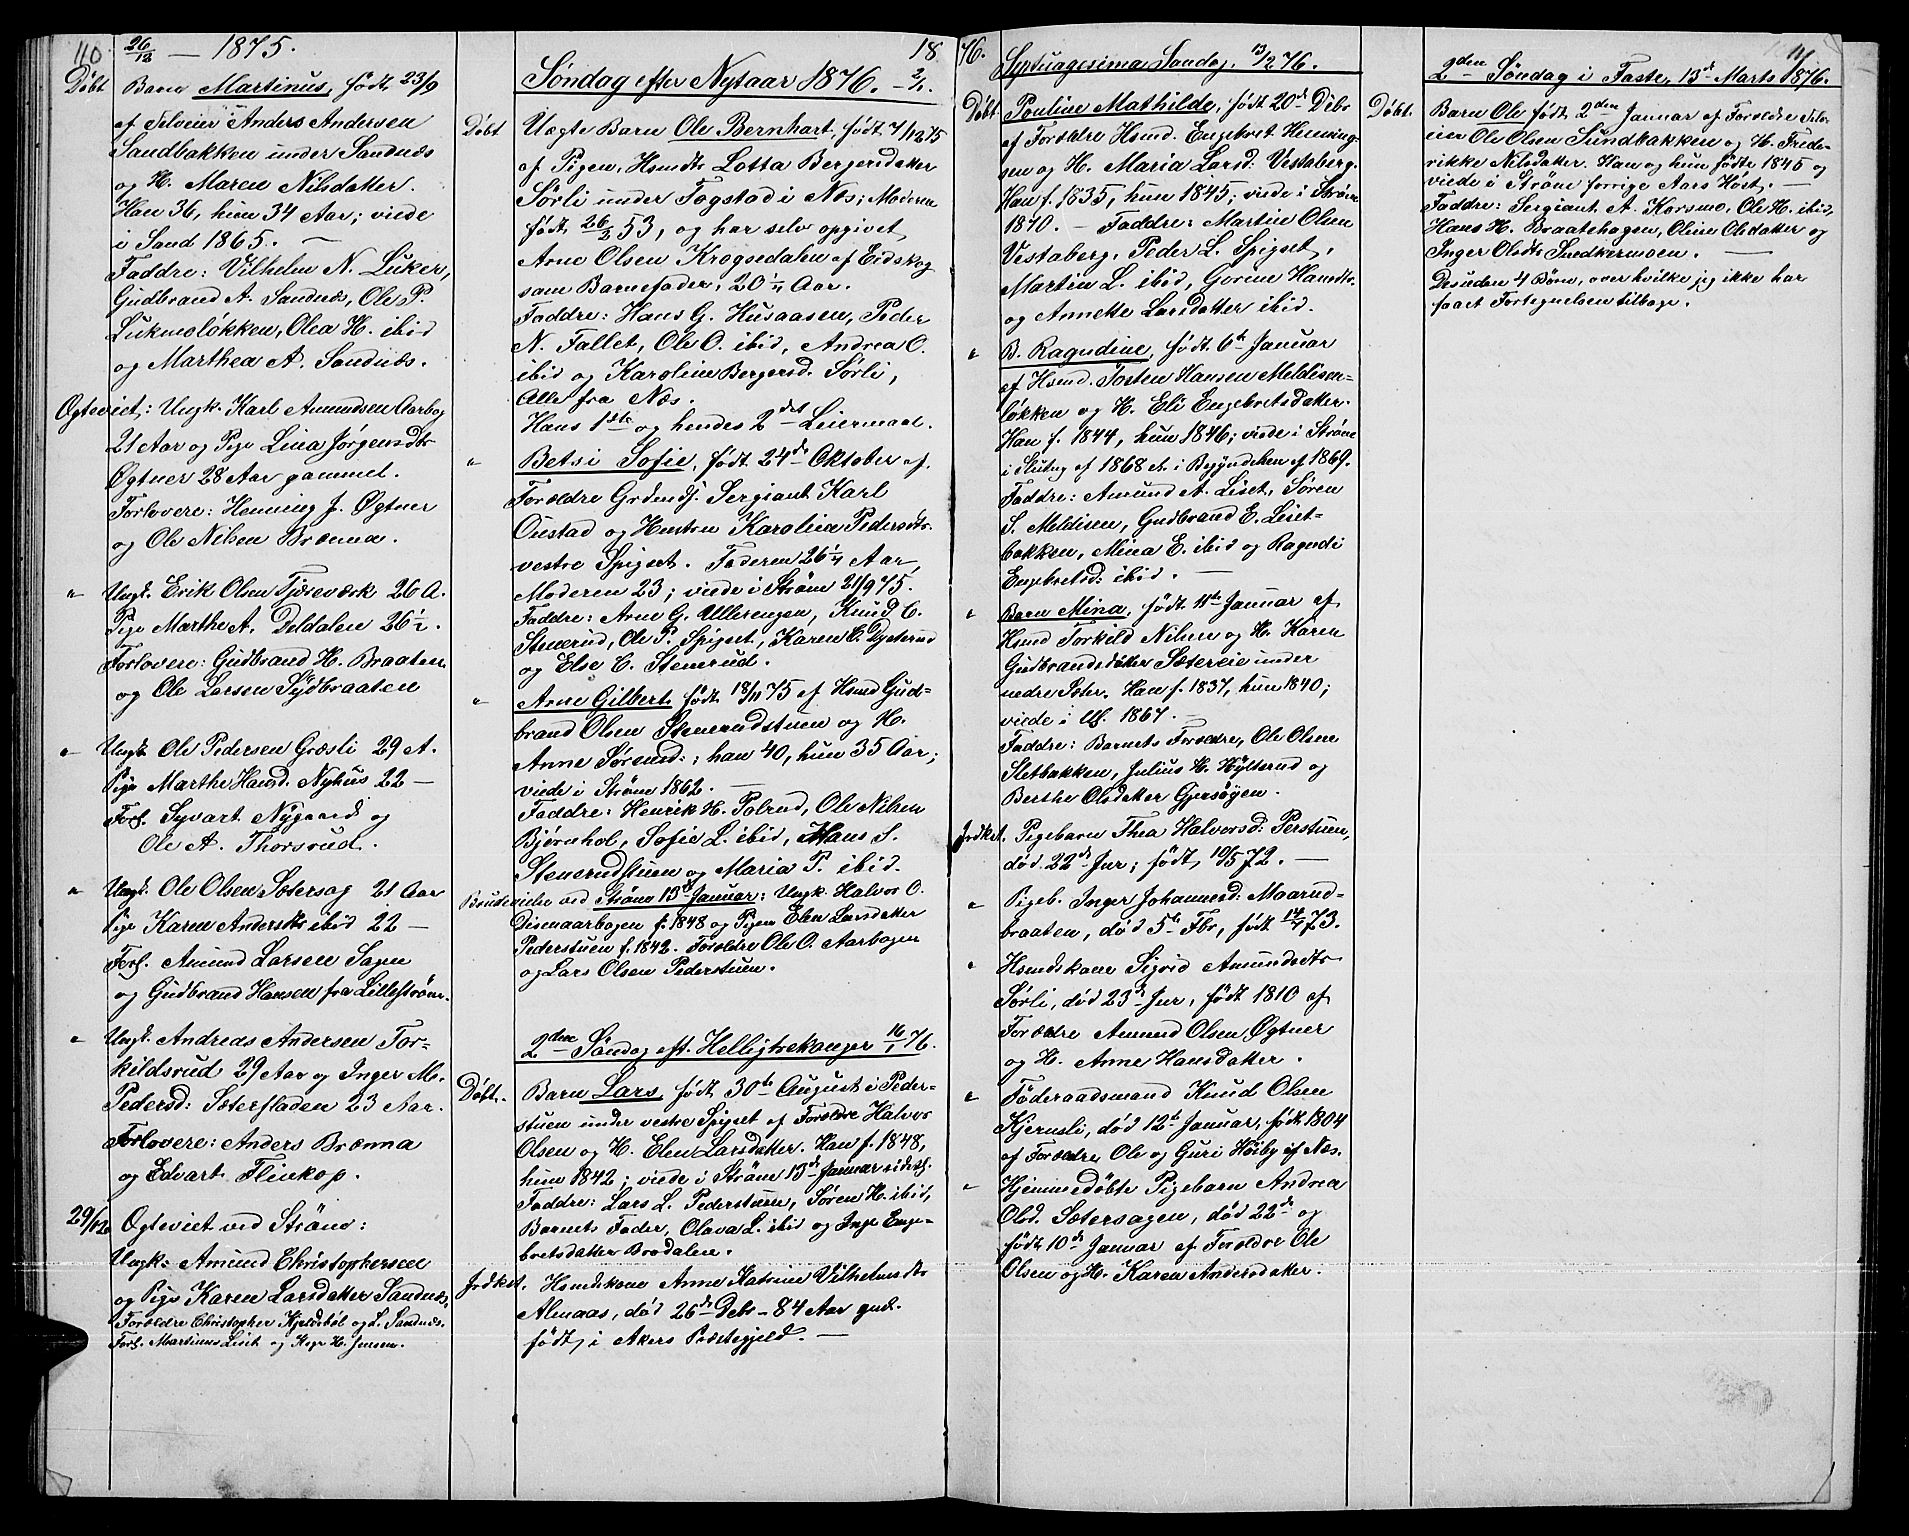 110
26/12 — 1875.
Døbt Barn Martinus, født 23/9
af Selveier Anders Andersen
Sandbakken under Sandnæs
og H. Maren Nilsdatter.
Han 36, hun 34 Aar; viede
i Sand 1865. —
Faddre: Vilhelm N. Luker,
Gudbrand A. Sandnæs, Ole P.
Lukmoløkken, Olea H. ibid
og Marthea A. Sandnæs.
Ogteviet: Ungk. Karl Amundsen Aarbog
21 Aar og Pige Lina Jørgensdtr
Øgtner 28 Aar gammel.
Forlovere: Henning J. Øgtner
og Ole Nilsen Brænna.
" Ungk. Erik Olsen Tjæreværk 26 A.
Pige Marthe A. Deldalen 26½.
Forlovere: Gudbrand H. Braaten
og Ole Larsen Sydbraaten
" Ungk. Ole Pedersen Græsli 29 A.
Pige Marthe Hansd. Nyhus 22 —
Forl. Syvart Nygaard og
Ole A. Thorsrud.
" Ungk. Ole Olsen Sætersag 21 Aar
Pige Karen Andersdtr ibid 22 —
Forl. Amund Larsen Sagen
og Gudbrand Hansen fra Lillestrøm.
" Ungk. Andreas Andersen Tor-
kildsrud 29 Aar og Inger M.
Pedersd: Sæterfladen 23 Aar.
Forlovere: Anders Brænna
og Edvart Flinkop.
29/12 Ogteviet ved Strøm:
Ungk. Amund Christophersen
og Pige Karen Larsdatter Sandnæs,
Forældre Christopher Kjeldsbøl og L. Sandnæs.
Forl. Martinus Liset og H. Jensen.
18
Søndag efter Nytaar 1876. — 2/1.
Døbt Uægte Barn Ole Bernhart, født 7/12 75
af Pigen, Hsmdtr Lotta Bergersdatter
Sørli under Fogstad i Næs; Moderen
født 26/2 53, og har selv opgivet
Arne Olsen Krogsedalen af Eidskog
som Barnefader, 20¼ Aar.
Faddre: Hans G. Husaasen, Peder
N. Fallet, Ole O. ibid, Andrea O.
ibid og Karoline Bergersd. Sørli,
Alle fra Næs.
Hans 1ste og hendes 2det Leiermaal.
" Betsi Sofie, født 24de Oktober af
Forældre Grdmds. Sergiant Karl
Oustad og Hustru Karolina Pedersdtr.
vestre Spigset. Faderen 26¼ Aar,
Moderen 23; viede i Strøm 21/9 75.
Faddre: Arne G. Ullerengen, Knud C.
Stenerud, Ole P. Spigset, Karen E. Dysterud
og Else C. Stenerud.
" Arne Gilbert født 18/11 75 af Hsmd Gud-
brand Olsen Stenerudstuen og H.
Anne Sørensd.; han 40, hun 35 Aar;
viede i Strøm 1862. —
Faddre: Henrik H. Polrud, Ole Nilsen
Bjørnhol, Sofie L. ibid, Hans S.
Stenerudstuen og Maria P. ibid.
Brudevielse ved Strøm 13de Januar: Ungk. Halvor O.
Disenaarbogen f. 1848 og Pigen Elen Larsdatter
Pederstuen f. 1842. Forældre Ole O. Aarbogen
og Lars Olsen Pederstuen.
2den Søndag eft. Helligtrekonger 16/1 76.
Døbt. Barn Lars, født 30te August i Peder-
stuen under vestre Spigset af Forældre Halvor
Olsen og H. Elen Larsdatter. Han f. 1848,
hun 1842; viede i Strøm 13de Januar sidstl.
Faddre: Lars L. Pederstuen, Søren H. ibid,
Barnets Fader, Olava L. ibid og Inge Enge-
bretsdatter Brodalen.
Jrdkst. Hsmdskone Anne Katrine Vilhelmsdtr
Almaas, død 26de Debr — 84 Aar gml.
født i Akers Præstegjeld. —
76.
Septuagesima Søndag, 13/2 76.
Døbt Pouline Mathilde, født 20de Debr
af Forældre Hsmd. Engebret Henning-
sen og H. Maria Larsd. Vestaberg.
Han f. 1835, hun 1845; viede i Strøm
1870. — Faddre: Martin Olsen
Vestaberg, Peder L. Spigset,
Martin L. ibid, Gorine Hansdtr.
og Annette Larsdatter ibid.
" B. Ragndine, født 6te Januar
af Hsmd. Torsten Hansen Meldisen-
løkken og H. Eli Engebretsdatter.
Han f. 1844, hun 1846; viede i Strøm
i Slutng af 1868 el. i Begyndelsen af 1869.
Faddre: Amund A. Liset, Søren
S. Meldisen, Gudbrand E. Liset-
bakken, Mina E. ibid og Ragndi
Engebretsd. ibid. —
" Barn Mina, født 11te Januar af
Hsmd Torkild Nilsen og H. Karen
Gudbrandsdatter Sætereie under
nedre Sæter. Han f. 1837, hun 1840;
viede i Uf. 1867. —
Faddre: Barnets Forældre, Ole Olsen
Sletbakken, Julius H. Hylterud og
Berthe Olsdatter Gjersøyen.
Jrdkst. Pigebarn Thea Halvorsd: Perstuen,
død 22de Jnr; født 10/5 72. —
" Pigeb. Inger Johannesd: Maarud-
braaten, død 5te Fbr, født 14/4 73.
" Hsmdskone Sigrid Amundsdtr
Sørli, død 23de Jnr, født 1810 af
Forældre Amund Olsen Øgtner
og H. Anne Hansdatter.
" Føderaadsmand Knud Olsen
Kjernsli, død 12te Januar, født 1804
af Forældre Ole og Guri Høiby af Næs.
" Hjemmedøbte Pigebarn Andrea
Olsd. Sætersagen, død 22de og
født 10de Januar af Forældre Ole
Olsen og H. Karen Andersdatter.
111
2den Søndag i Faste, 13de Marts 1876.
Døbt. Barn Ole født 2den Januar af Forældre Selv-
eier Ole Olsen Sundbakken og H. Frede-
rikke Nilsdatter. Han og hun født 1845 og
viede i Strøm forrige Aars Høst. —
Faddre: Sergiant A. Korsmo, Ole H. ibid,
Hans H. Braatehagen, Oline Olsdatter og
Inger Olsdtr Smedkermoen. —
Desuden 4 Børn, over hvilke jeg ikke har
faaet Fortegnelsen tilbage.